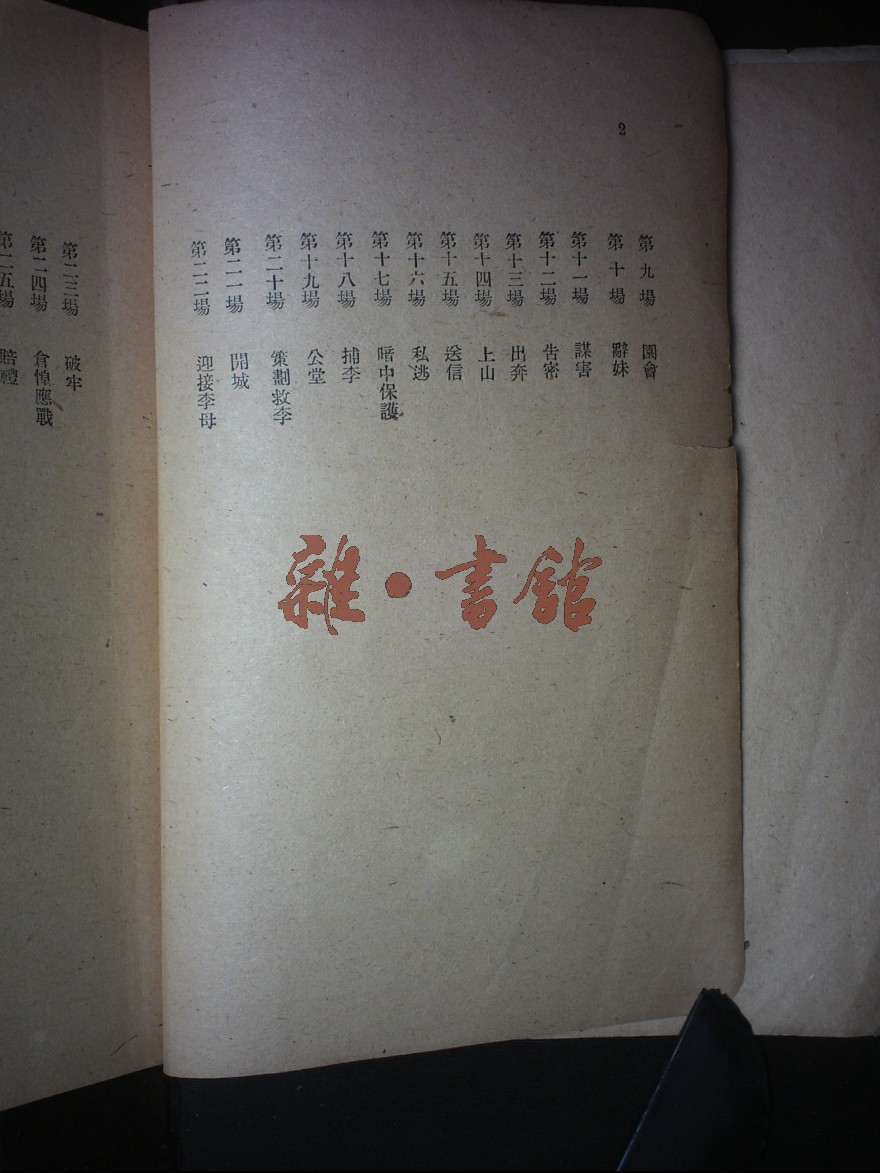 2
第九場 園會
第十場 辭妹
第十一場 謀害
第十二場 告密
第十三場 出奔
第十四場 上山
第十五場 送信
第十六場 私逃
第十七場 暗中保護
第十八場 捕李
第十九場 公堂
第二十場 策劃救李
第二一場 開城
第二二場 迎接李母
第二三場 破牢
第二四場 倉惶應戰
第二五場 賠禮
雜·書館